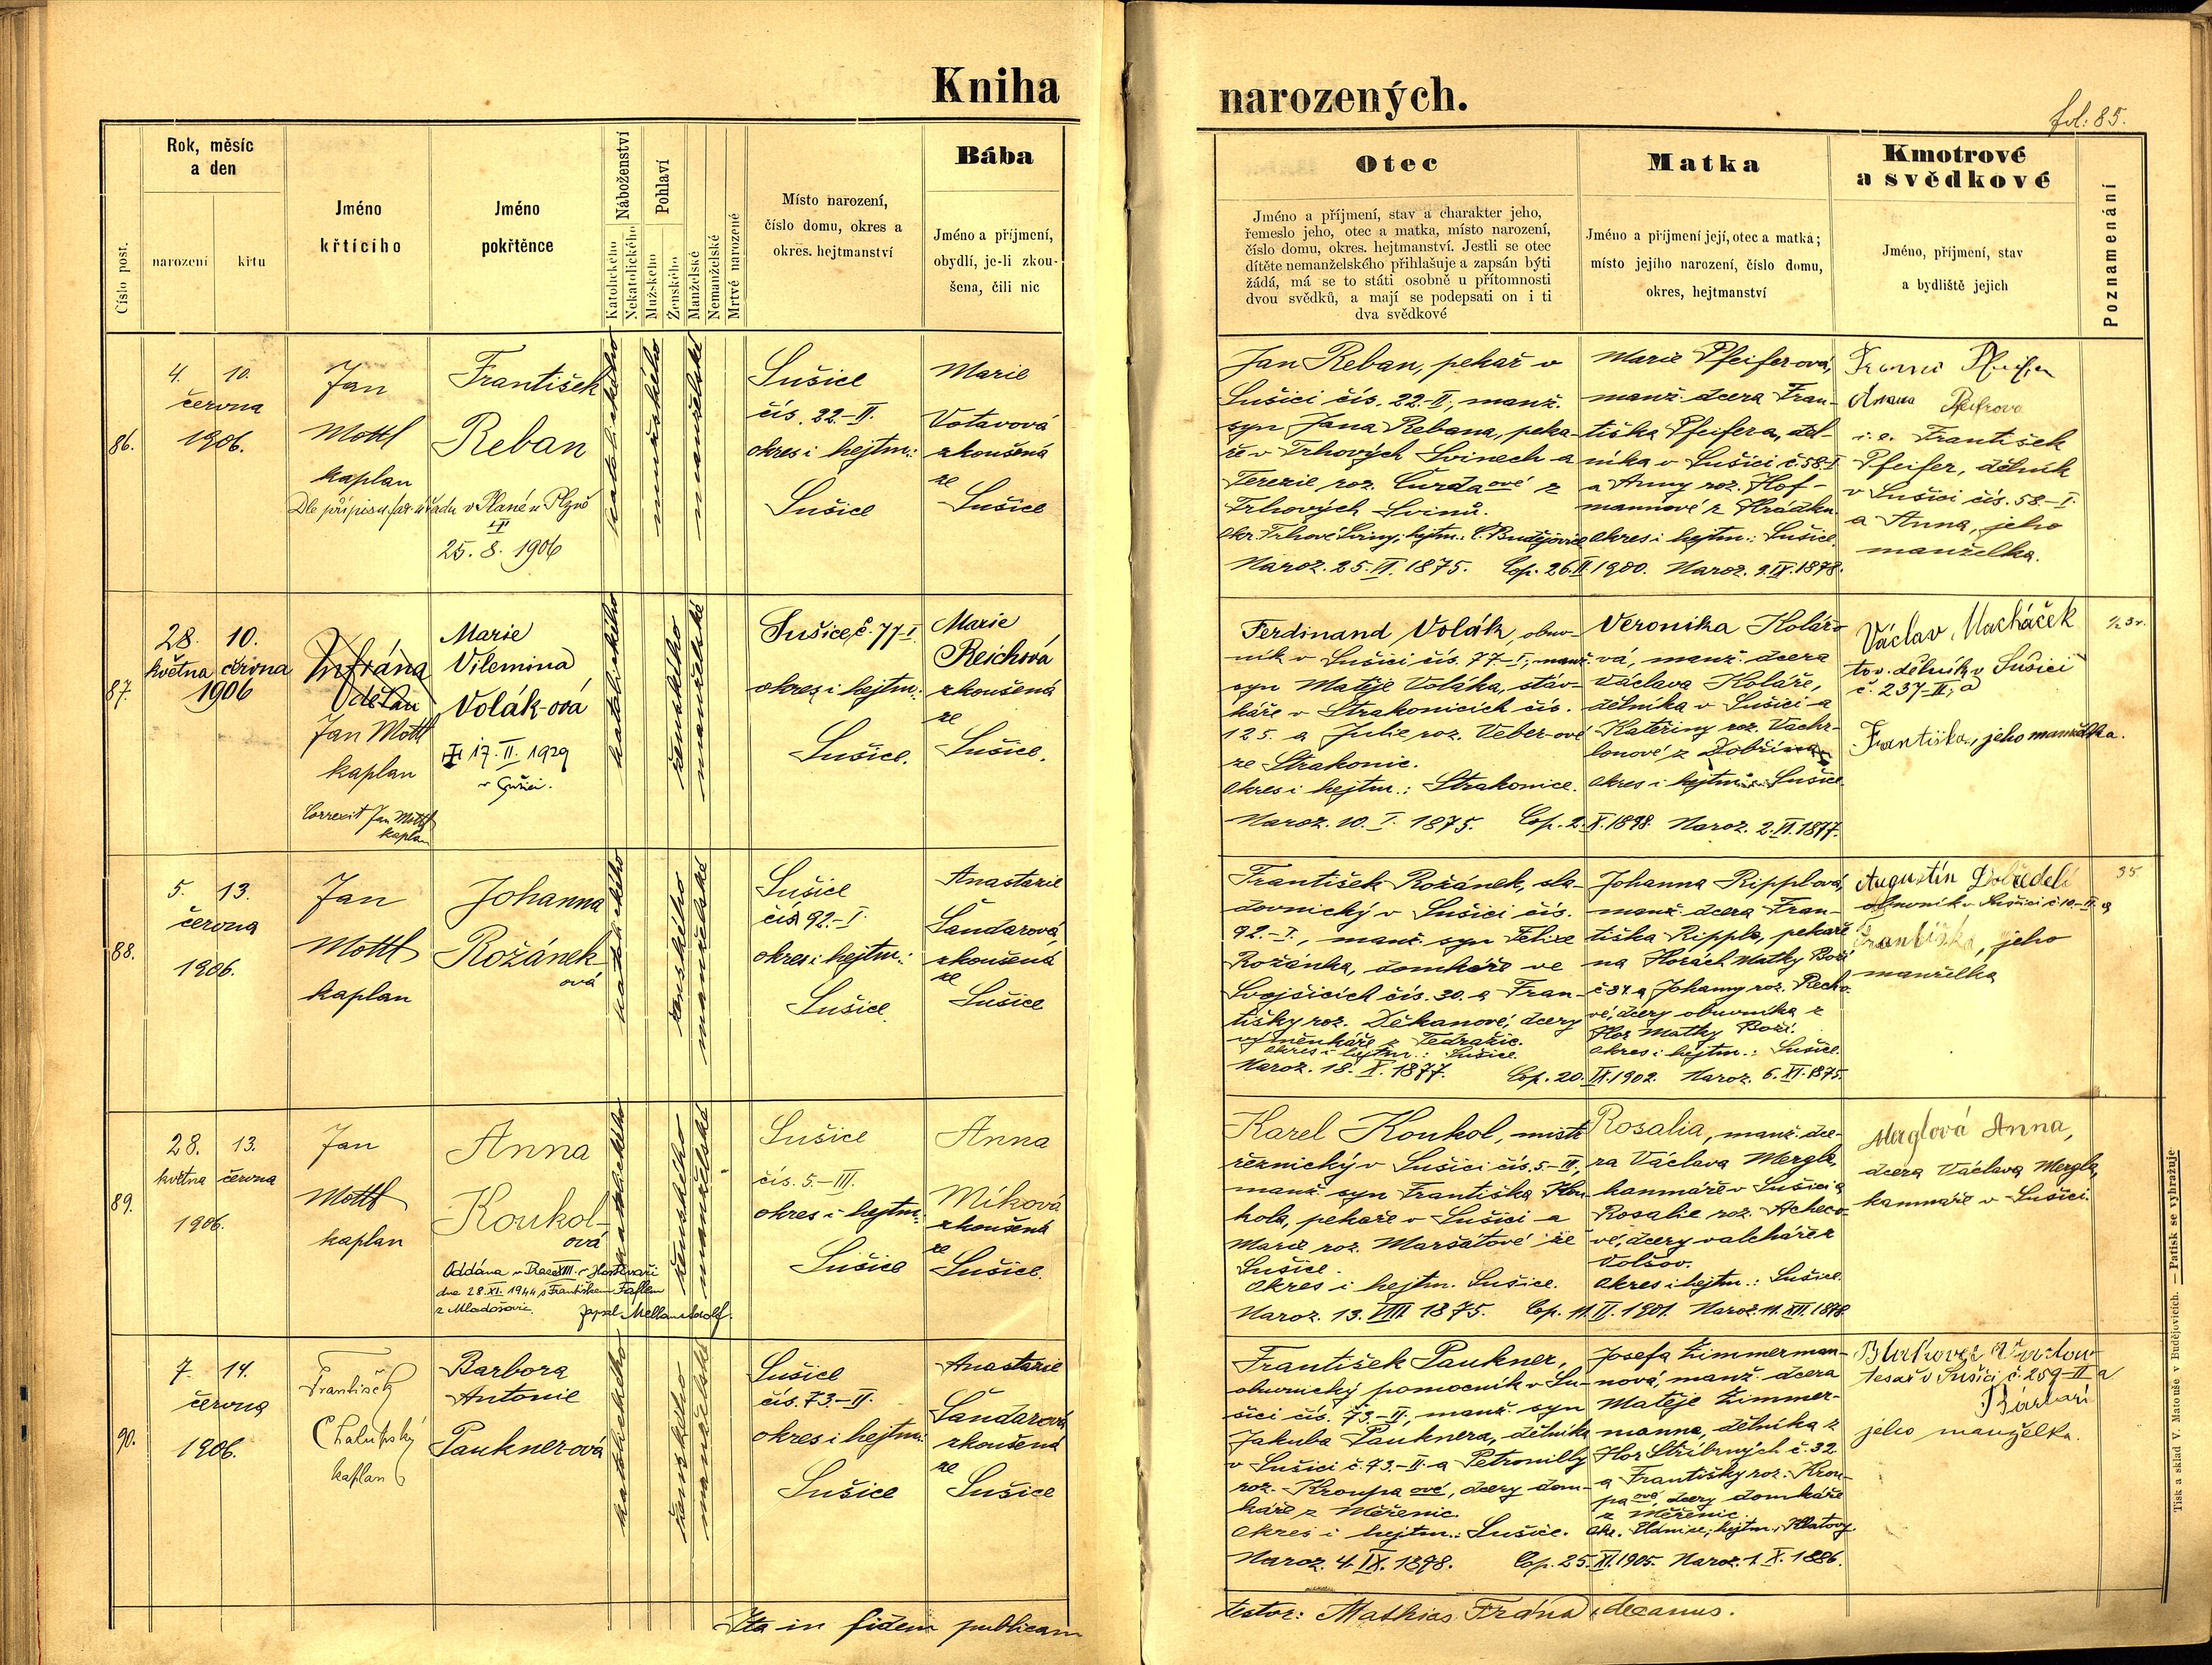 Kniha
narozených.
fol: 85.
Číslo post.
Rok, měsíc
a den
narození
křtu
Jméno
křtícího
Jméno
pokřtěnce
Náboženství
Katolického
Nekatolického
Pohlaví
Mužského
Ženského
Manželské
Nemanželské
Mrtvé narozené
Místo narození,
číslo domu, okres a
okres. hejtmanství
Bába
Jméno a příjmení,
obydlí, je-li zkou-
šena, čili nic
Otec
Jméno a příjmení, stav a charakter jeho,
řemeslo jeho, otec a matka, místo narození,
číslo domu, okres. hejtmanství. Jestli se otec
dítěte nemanželského přihlašuje a zapsán býti
žádá, má se to státi osobně u přítomnosti
dvou svědků, a mají se podepsati on i ti
dva svědkové
Matka
Jméno a příjmení její, otec a matka;
místo jejího narození, číslo domu,
okres, hejtmanství
Kmotrové
a svědkové
Jméno, příjmení, stav
a bydliště jejich
Poznamenání
86.
4. 10.
června
1906.
Jan
Mottl
kaplan
František
Reban
Dle přípisu far. úřadu v Plané u Plzně
25. 8. 1906
katolického
mužského
manželské
Sušice
čís. 22-II.
okres i hejtm.:
Sušice
Marie
Votavová
zkoušená
ze
Sušice
Jan Reban, pekař v
Sušici čís. 22.-II; manž.
syn Jana Rebana, peka-
ře v Trhových Svinech a
Terezie roz. Čurdaové z
Trhových Svinů.
Okr. Trhové Sviny; hejtm.: Č. Budějovice
Naroz. 25. II. 1875. Cop. 26. II. 1900.
Marie Pfeiferová,
manž. dcera Fran-
tiška Pfeifera, děl-
níka v Sušici č. 58-I
a Anny roz. Hof-
mannové z Hrádku.
Okres i hejtm.: Sušice.
Naroz. 9. IX. 1878.
Anna
i. e. František
Pfeifer, dělník
v Sušici čís. 58-I.
a Anna, jeho
manželka.
87.
28. 10.
května června
1906
děkan
Jan Mottl
kaplan
Correxit Jan Mottl
kaplan
Marie
Vilemina
Volák-ová
17. II. 1929
v Sušici.
katolického
ženského
manželské
Sušice, č. 77-I
okres i hejtm.:
Sušice.
Marie
Reichová
zkoušená
ze
Sušice.
Ferdinand Volák, obuv-
ník v Sušici čís. 77-I; manž.
syn Matěje Voláka, stáv-
káře v Strakonicích čís.
125. a Julie roz. Veber-ové
ze Strakonic.
Okres i hejtm.: Strakonice.
Naroz. 10. I. 1875. Cop. 2. X. 1898.
Veronika Kolářo-
vá, manž. dcera
Václava Koláře,
dělníka v Sušici a
Kateřiny roz. Vachr-
lonové z
Okres i hejtm.: Sušice.
Naroz. 2. II. 1877.
Václav Macháček
tov. dělník v Sušici
č. 237-II; a
Františka, jeho manželka.
88.
5. 13.
června
1906.
Jan
Mottl
kaplan
Johanna
Rožánek-
ová
katolického
ženského
manželské
Sušice
čís 92.-I.
okres i hejtm.:
Sušice
Anastazie
Šandarová,
zkoušená
ze
Sušice
František Rožánek, sla-
dovnický v Sušici čís.
92.-I., manž. syn Felixe
Rožánka, domkáře ve
Svojšicích čís. 30. a Fran-
tišky roz. Děkanové, dcery
výměnkáře z Tedražic.
Okres i hejtm.: Sušice.
Naroz. 18. X. 1877. Cop. 20. IX. 1902.
Johanna Ripplová,
manž. dcera Fran-
tiška Rippla, pekaře
na Horách Matky Boží
č 87. a Johanny roz. Recho-
vé, dcery obuvníka z
Hor Matky Boží.
Okres i hejtm.: Sušice.
Naroz. 6. XI. 1875.
Augustin Dobředěl
obuvník v Sušici č 10-II. a
Františka, jeho
manželka
35
89.
28. 13.
května června
1906.
Jan
Mottl
kaplan
Anna
Koukol-
ová
Oddána v Praze XIII. v Hostivaři
dne 28. XI. 1944 s Františkem
z Mladošovic.
katolického
ženského
manželské
Sušice
čís. 5-III.
okres i hejtm.:
Sušice
Anna
Míková
zkoušená
ze
Sušice.
Karel Koukol, mistr
řeznický v Sušici čís. 5-III,
manž. syn Františka Kou-
kola, pekaře v Sušici a
Marie roz. Maršátové ze
Sušice.
Okres i hejtm. Sušice.
Naroz. 13. VIII. 1875. Cop. 11. II. 1901.
Rosalia, manž. dce-
ra Václava Mergla,
kamnáře v Sušici a
Rosalie roz. Acheco-
vé, dcery valcháře z
Volšov.
Okres i hejtm.: Sušice.
Naroz. 11. XII. 1878.
Merglová Anna,
dcera Václava Mergla,
kamnáře v Sušici.
90.
7. 14.
června
1906.
František
Chalupský
kaplan
Barbora
Antonie
Paukner-ová
katolického
ženského
manželské
Sušice
čís. 73.-II.
okres i hejtm.:
Sušice
Anastazie
Šandarová,
zkoušená
ze
Sušice
František Paukner,
obuvnický pomocník v Su-
šici čís. 73.-II., manž. syn
Jakuba Pauknera, dělníka
v Sušici č. 73.-II. a Petronilly
roz. Kroupa ové, dcery dom-
káře z Měřenic.
Okres i hejtm.: Sušice.
Naroz. 4. IX. 1878. Cop. 25. XI. 1905.
Josefa Zimmerman-
nová, manž. dcera
Matěje Zimmer-
manna, dělníka z
Hor Stříbrných č. 32
a Františky roz. Krou-
pa ové, dcery domkáře
z Měřenic.
hejtm.: Klatovy.
Naroz. 1. X. 1886.
tesař v Sušici č. 259-II a
jeho manželka.
Ita in fidem publicam
testor: Mathias Frána, decanus.
Tisk a sklad V. Matouše v Budějovicích. — Patisk se vyhražuje